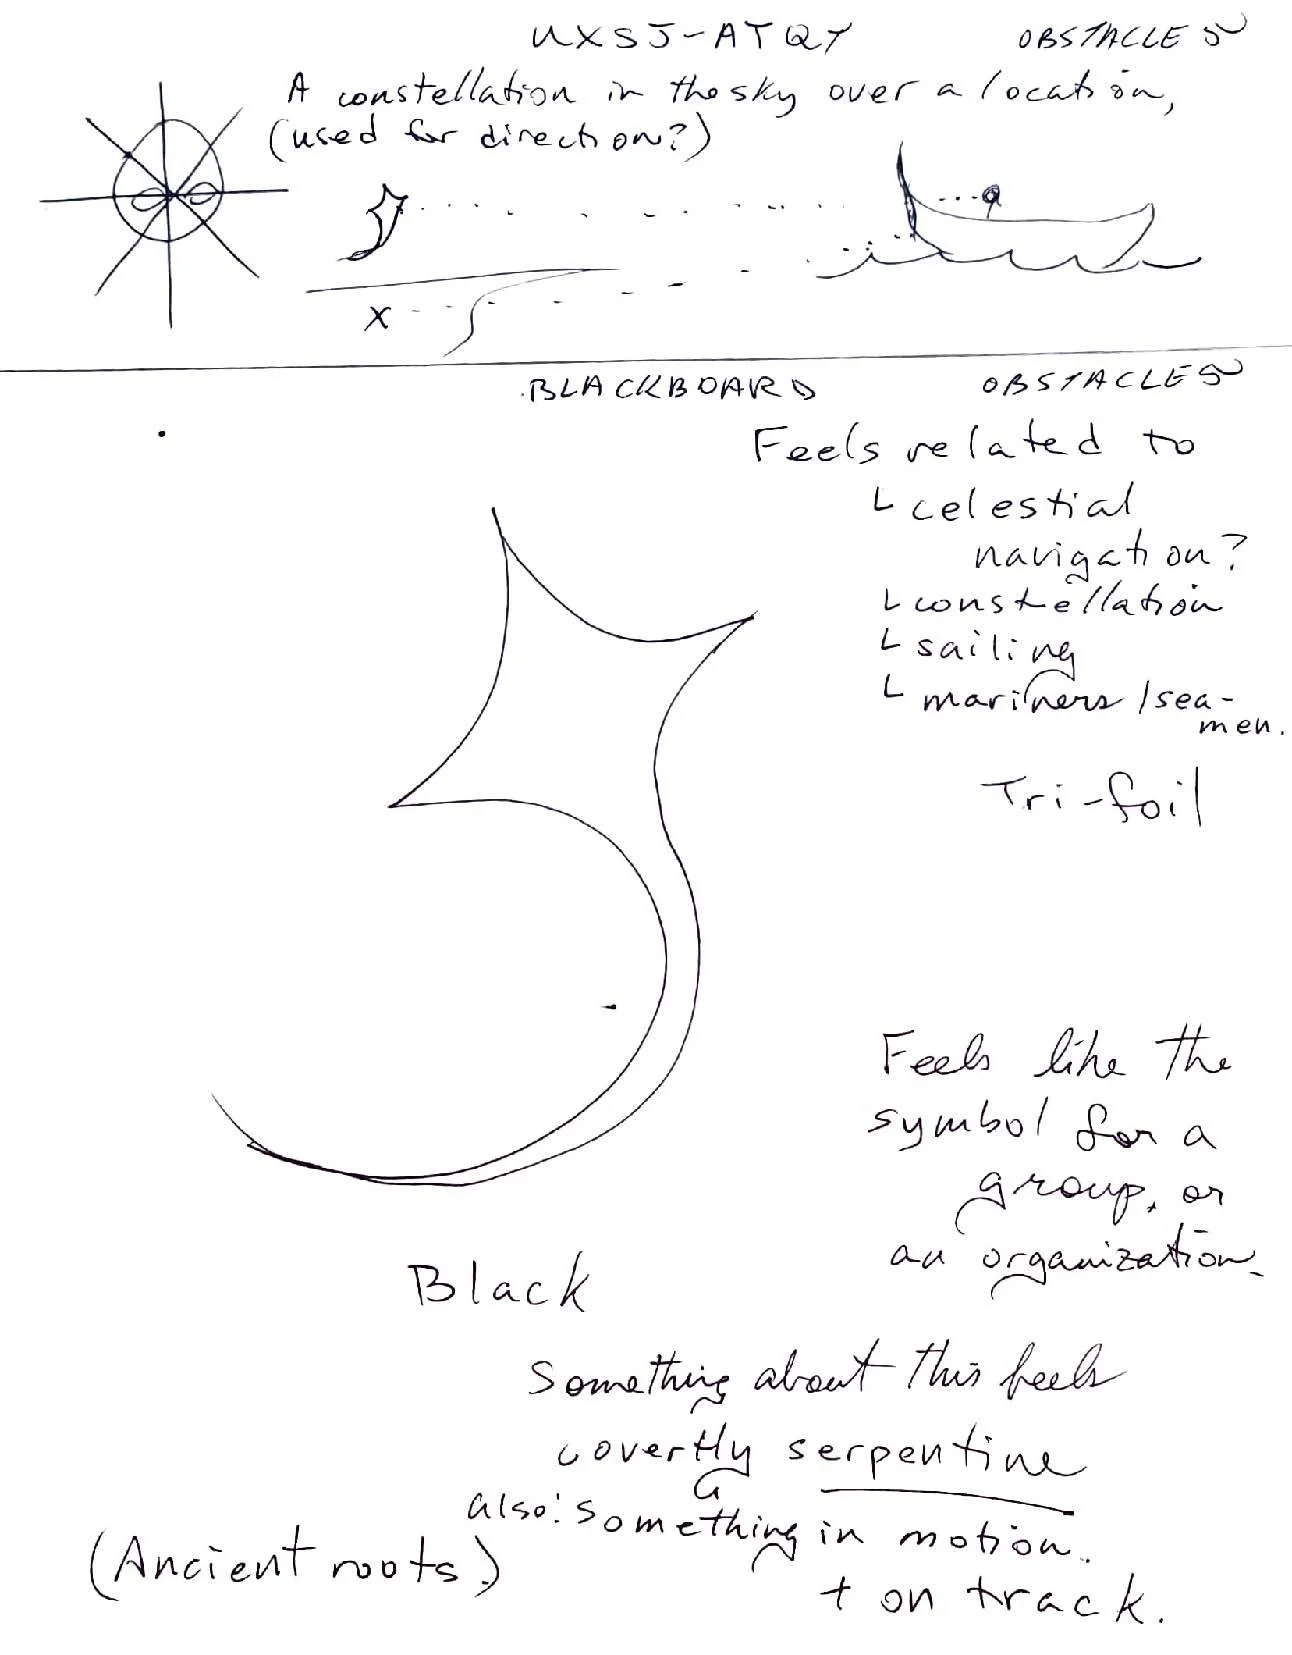 UXSJ-ATQY OBSTACLES
A constellation in the sky over a location,
(used for direction?)
X
BLACKBOARD OBSTACLES
Feels related to
└ celestial
navigation?
└ constellation
└ sailing
└ mariners/sea-
men.
Tri-foil
Feels like the
symbol for a
group, or
an organization.
Black
Something about this feels
covertly serpentine
also: something in motion.
(Ancient roots.)
+ on track.